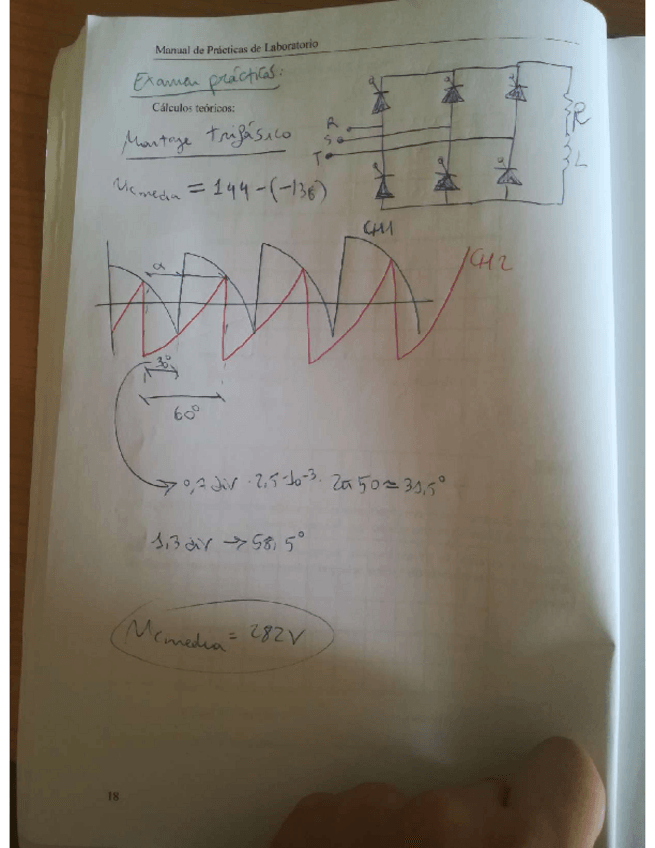 Manual de Prácticas de Laboratorio
Examen prácticas:
Cálculos teóricos:
Montaje trifásico
R
S
T
R
L
Uc media = 144 - (-138)
CH1
CH2
α
30°
60°
0,7 div · 2,5·10⁻³ · 2π 50 = 31,5°
1,3 div → 58,5°
Uc media = 282V
18